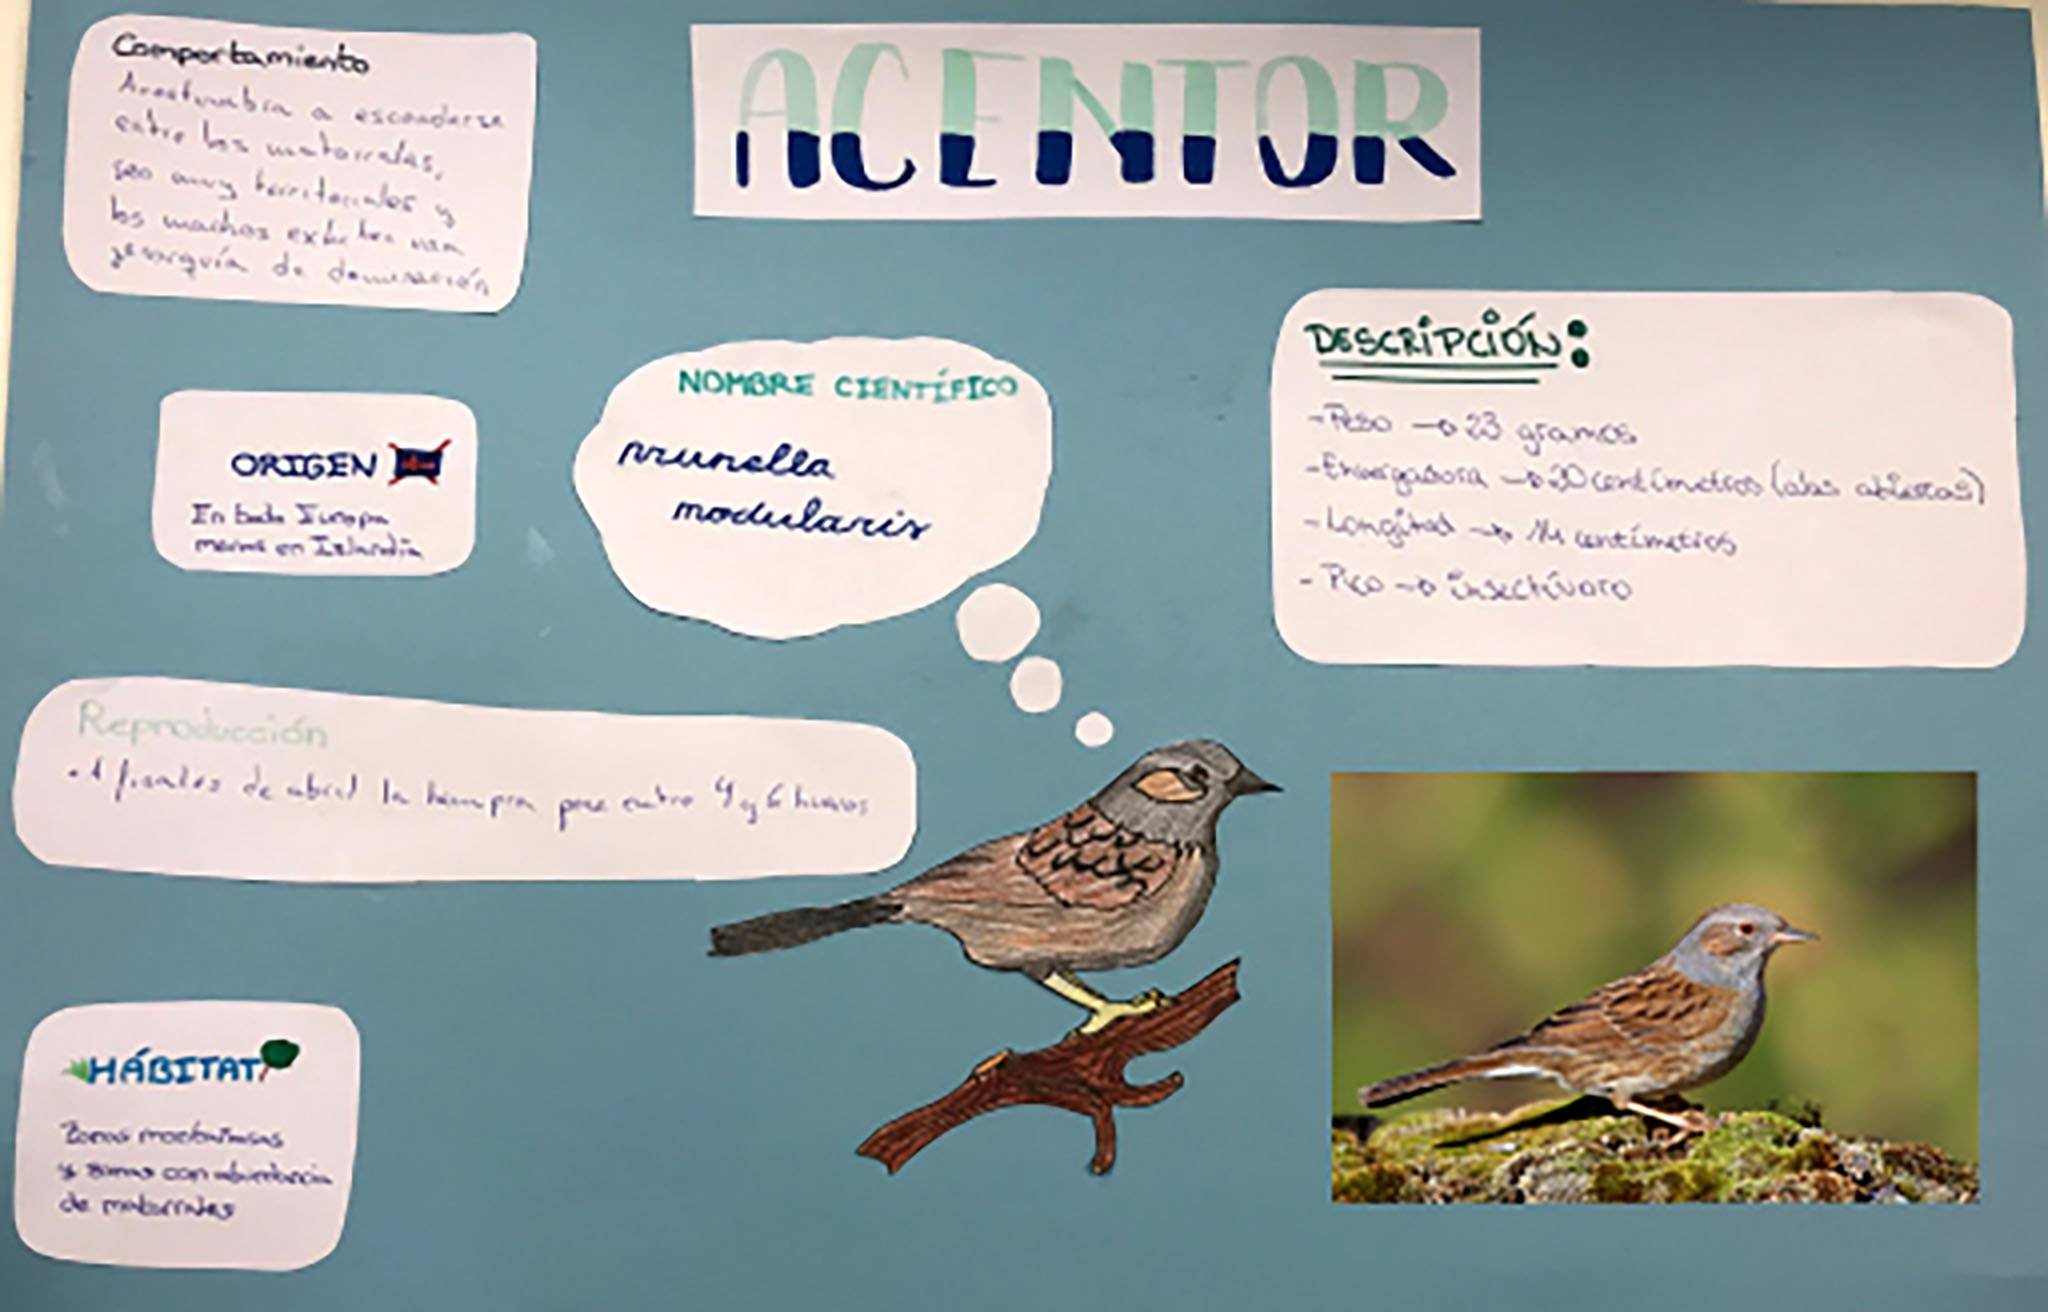 ACENTOR
Comportamiento
a esconderse
entre los matorrales,
son muy territoriales y
los machos exhiben una
jerarquía de dominación
ORIGEN
En toda Europa
menos en Islandia
NOMBRE CIENTÍFICO
prunella
modularis
DESCRIPCIÓN:
-Peso → 23 gramos
-Envergadura → 20 centímetros (alas abiertas)
-Longitud → 14 centímetros
-Pico → insectívoro
Reproducción
• A finales de abril la hempra pone entre 4 y 6 huevos
HÁBITAT
Zonas montañosas
y zonas con abundancia
de matorrales